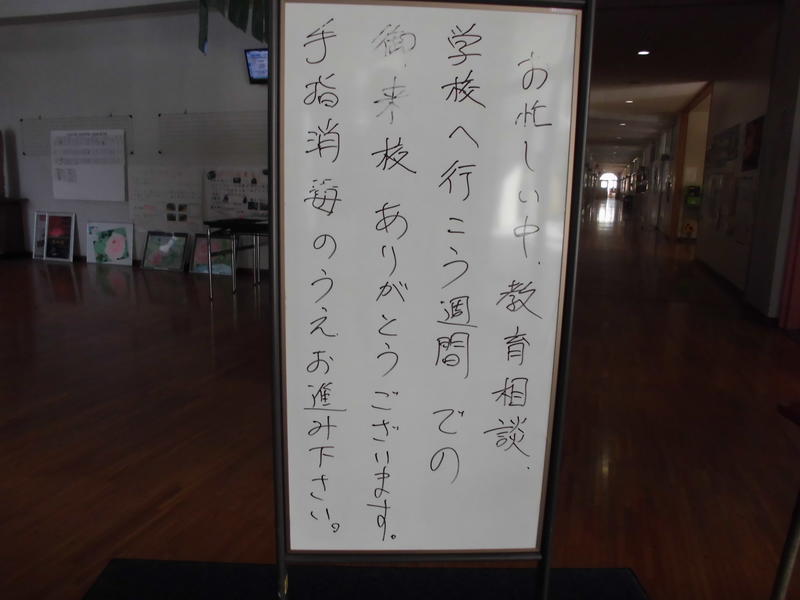 お忙しい中、教育相談、
学校へ行こう週間での
御来校ありがとうございます。
手指消毒のうえお進み下さい。